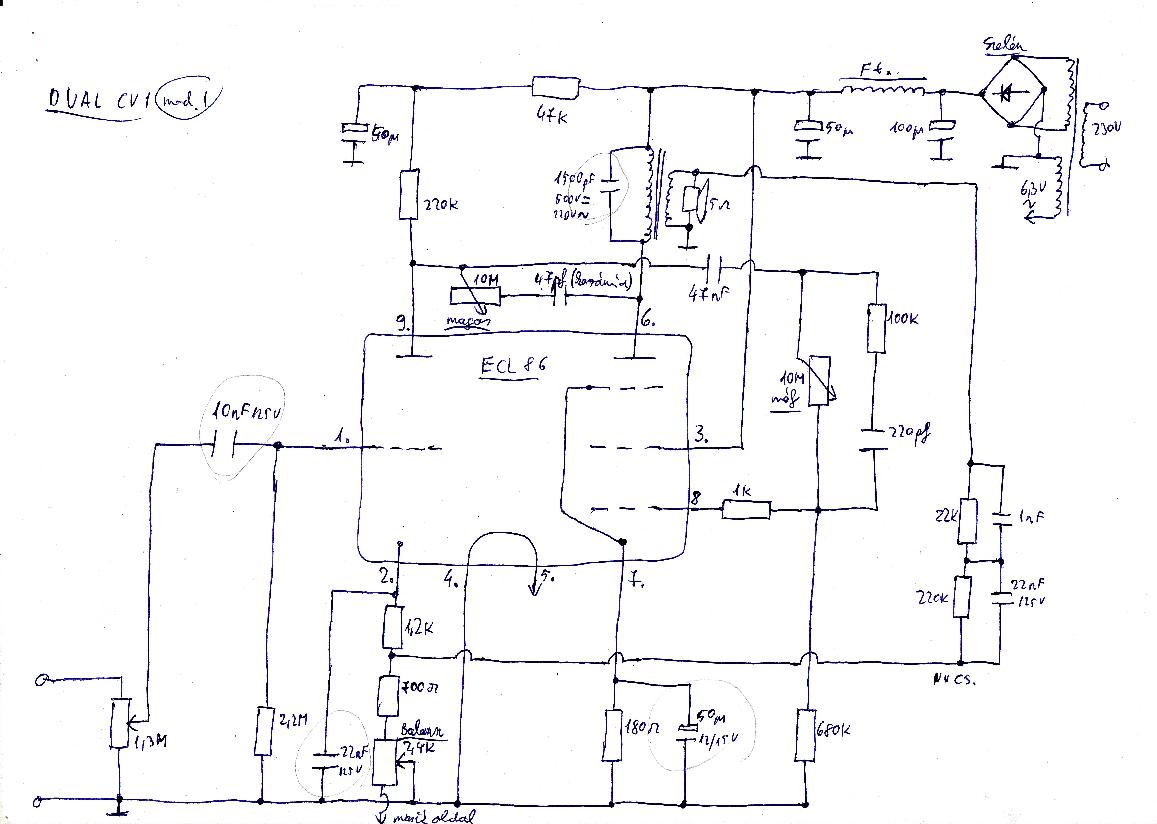 DUAL CV1 mod.1
Szelén
Ft.
47K
50µ
50µ
100µ
230V
6,3V
~
220K
1500pF
500V=
220V~
5Ω
10M
47pf (kerámia)
47nF
magas
9.
6.
ECL 86
100K
10M
mély
10nF 125V
1.
3.
220pf
8
1K
22K
1nF
2.
4.
5.
7.
220K
22nF
125V
1,2K
Nv cs.
700Ω
1,3M
2,2M
22nF
125V
Balansz
2,4K
180Ω
50µ
12/15V
680K
másik oldal